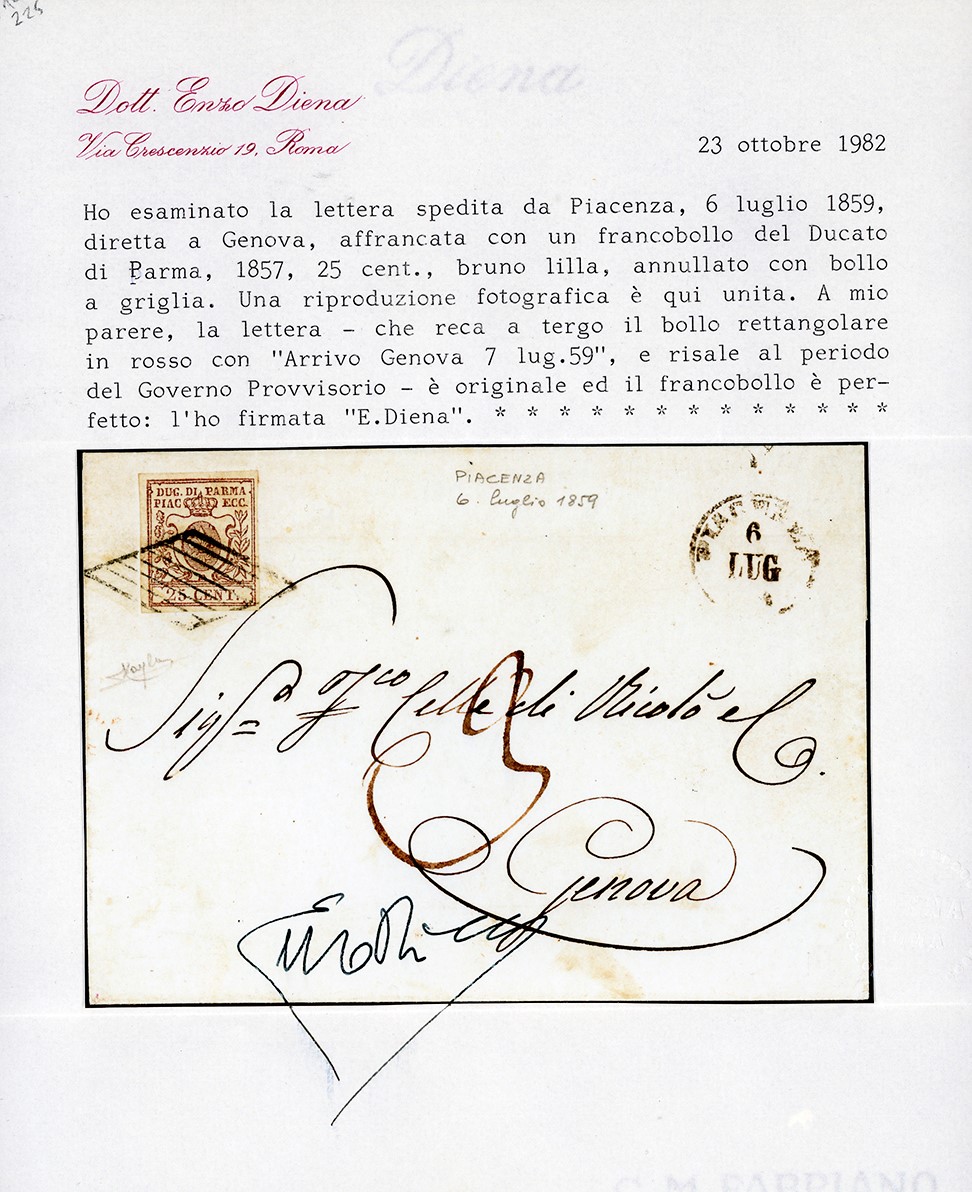 225
Diena
Dott. Enzo Diena
Via Crescenzio 19, Roma
23 ottobre 1982
Ho esaminato la lettera spedita da Piacenza, 6 luglio 1859,
diretta a Genova, affrancata con un francobollo del Ducato
di Parma, 1857, 25 cent., bruno lilla, annullato con bollo
a griglia. Una riproduzione fotografica è qui unita. A mio
parere, la lettera - che reca a tergo il bollo rettangolare
in rosso con "Arrivo Genova 7 lug.59", e risale al periodo
del Governo Provvisorio - è originale ed il francobollo è per-
fetto: l'ho firmata "E.Diena". * * * * * * * * * * * * *
DUC. DI PARMA
PIAC ECC.
25 CENT.
PIACENZA
6. luglio 1859
PIACENZA
6
LUG
Celle di Nicolò e C.
3
Genova
C.M.FABRIANO